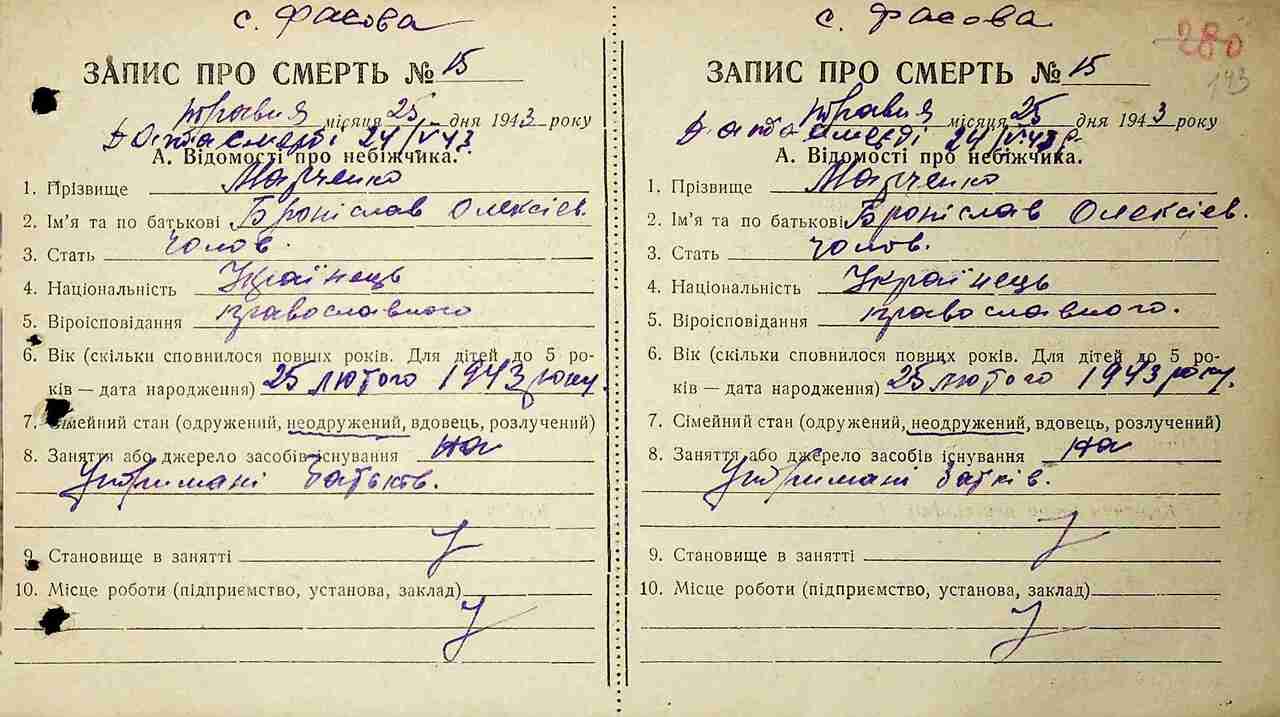 с. Фасова
ЗАПИС ПРО СМЕРТЬ № 15
травня місяця 25 дня 1943 року
Дата смерті 24/V 43
А. Відомості про небіжчика.
1. Прізвище Марченко
2. Ім'я та по батькові Броніслав Олексієв.
3. Стать чолов.
4. Національність Українець
5. Віроісповідання православного
6. Вік (скільки сповнилося повних років. Для дітей до 5 ро-
ків — дата народження) 25 лютого 1943 року.
7. Сімейний стан (одружений, неодружений, вдовець, розлучений)
8. Заняття або джерело засобів існування на
утримані батьків.
9. Становище в занятті
10. Місце роботи (підприємство, установа, заклад)
с. Фасова
280
193
ЗАПИС ПРО СМЕРТЬ № 15
травня місяця 25 дня 1943 року
Дата смерті 24/V 43 р.
А. Відомості про небіжчика.
1. Прізвище Марченко
2. Ім'я та по батькові Броніслав Олексієв.
3. Стать чолов.
4. Національність Українець
5. Віроісповідання православного.
6. Вік (скільки сповнилося повних років. Для дітей до 5 ро-
ків — дата народження) 25 лютого 1943 року.
7. Сімейний стан (одружений, неодружений, вдовець, розлучений)
8. Заняття або джерело засобів існування на
утримані батків.
9. Становище в занятті
10. Місце роботи (підприємство, установа, заклад)